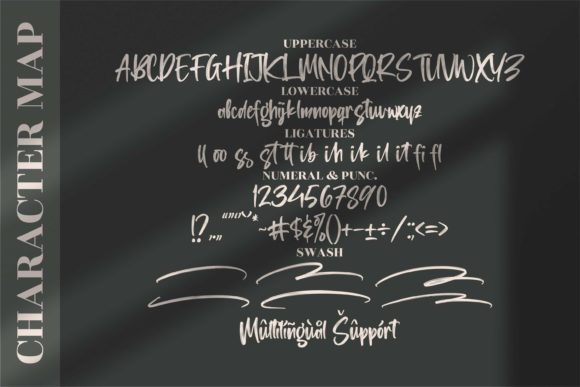 CHARACTER MAP
UPPERCASE
ABCDEFGHIJKLMNOPQRSTUVWXYZ
LOWERCASE
abcdefghijklmnopqrstuvwxyz
LIGATURES
ll oo ss st tt ib ih ik il it fi fl
NUMERAL & PUNC.
1234567890
!?,.,„ “”‘’^*~#$&%()+-±÷/:;<=>
SWASH
Mûltilïñgùål Šûppórt